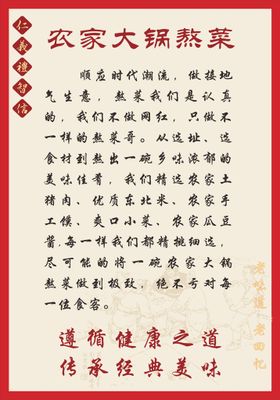 仁義禮智信
农家大锅熬菜
顺应时代潮流，做接地
气生意，熬菜我们是认真
的，我们不做网红，只做不
一样的熬菜哥。从选址、选
食材到熬出一碗乡味浓郁的
美味佳肴，我们精选农家土
猪肉、优质东北米、农家手
工馍、爽口小菜、农家瓜豆
酱，每一样我们都精挑细选，
尽可能的将一碗农家大锅
熬菜做到极致，绝不亏对每
一位食客。
老味道 老回忆
遵循健康之道
传承经典美味